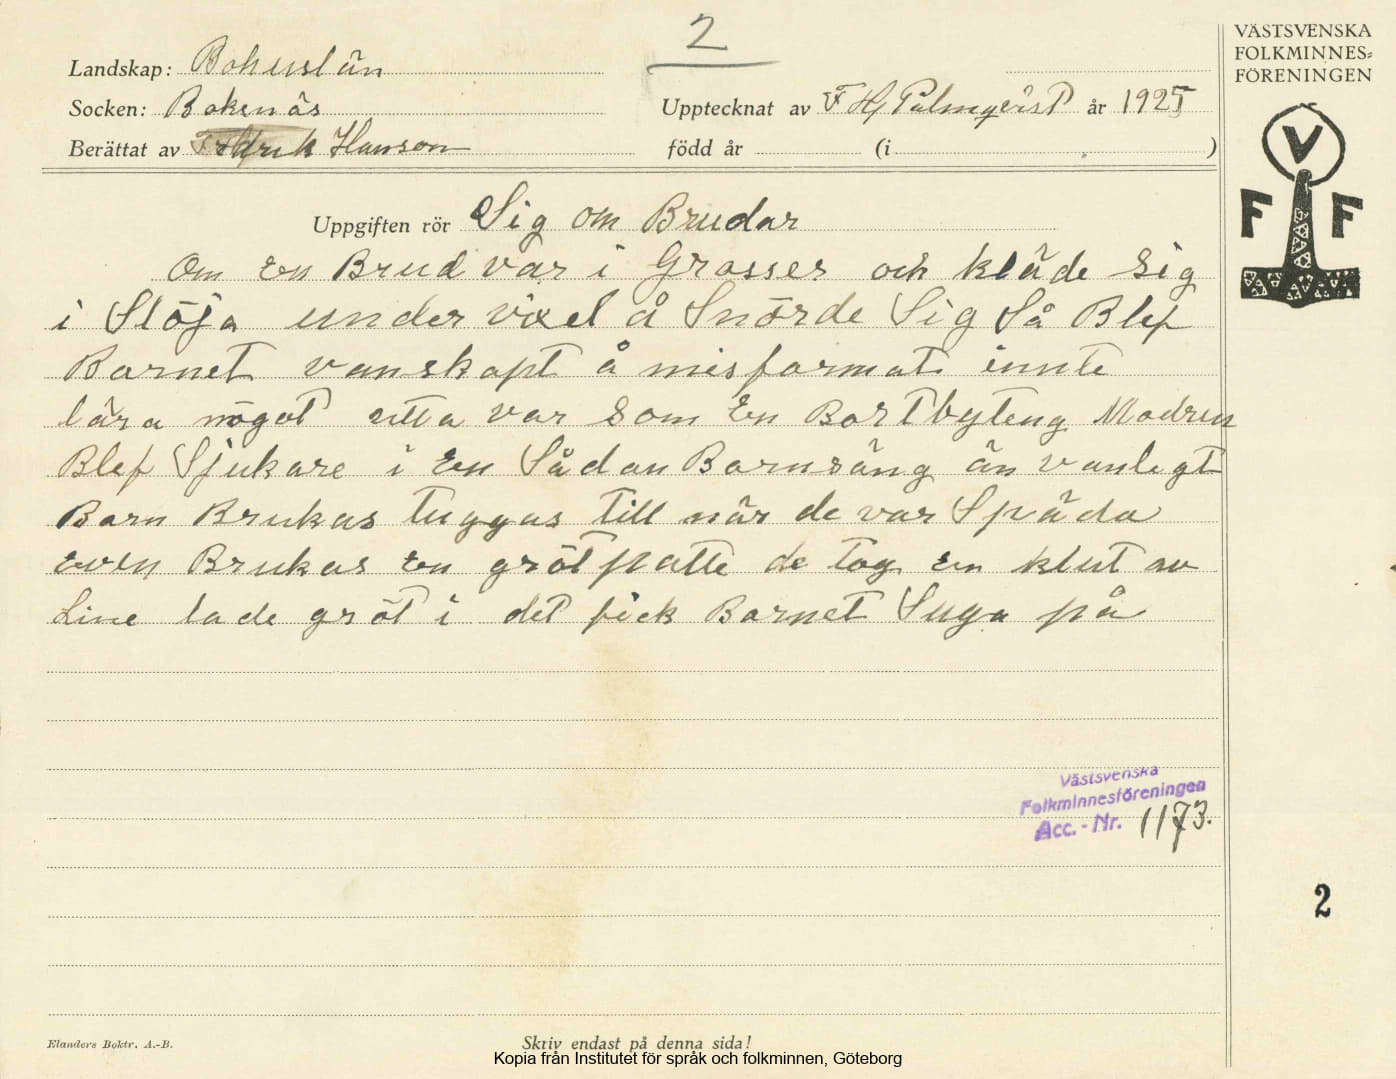 2
VÄSTSVENSKA
FOLKMINNES=
FÖRENINGEN
Landskap: Bohuslän
Socken: Bokenäs
Upptecknat av F Hj Palmqvist år 1925
Berättat av Fredrik Hanson
född år (i )
V
F F
Uppgiften rör Sig om Brudar
Om en Brud var i Grosser och kläde Sig
i Slöja under vixel å Snörde Sig Så Blef
Barnet vanskapt å misformat innte
lära något utta var Som En Bortbyteng Modren
Blef Sjukare i En Sådan Barnsäng än vanlegt
Barn Brukas tuggas till när de var Späda
even Brukas en grötpatte de tog en klut av
Line lade gröt i det fick Barnet Suga på
Västsvenska
Folkminnesföreningen
Acc.-Nr. 1173.
2
Elanders Boktr. A.-B.
Skriv endast på denna sida!
Kopia från Institutet för språk och folkminnen, Göteborg